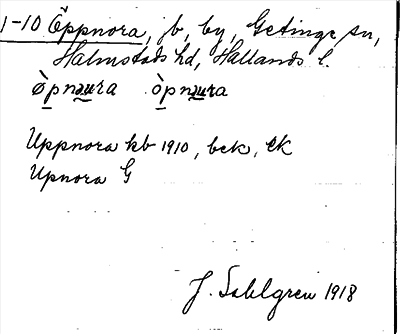 1-10 Öppnora, jb, by, Getinge sn,
Halmstads hd, Hallands l.
òpnəura òpnəura
Uppnora kb 1910, bek, EK
Upnora G
J. Sahlgren 1918